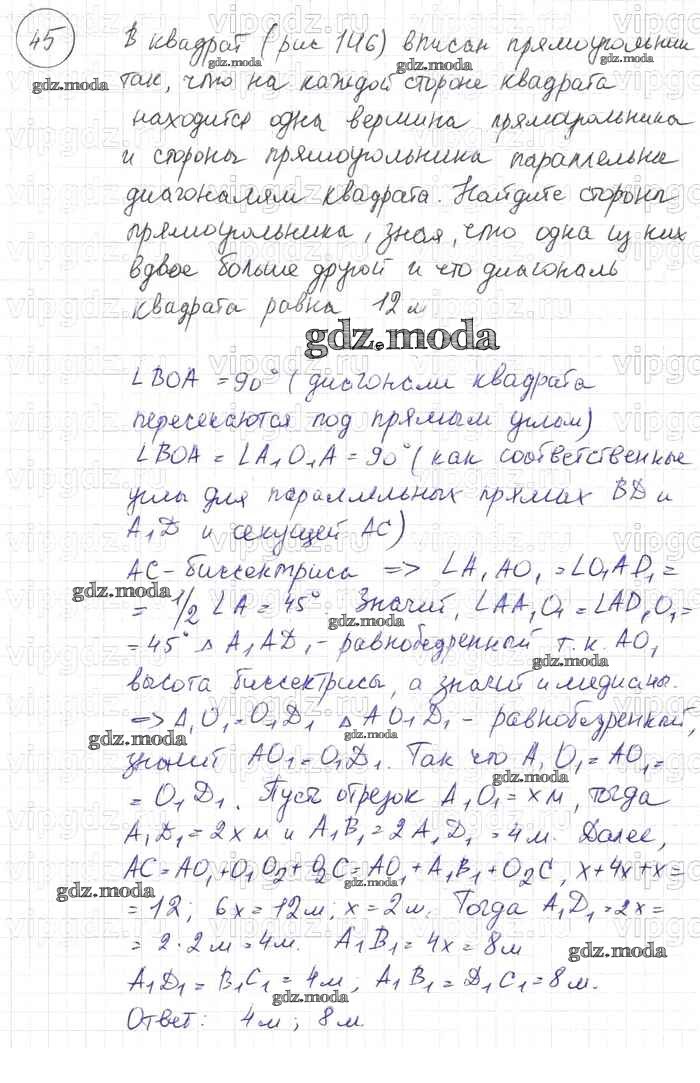 45
В квадрат (рис 146) вписан прямоугольник
так, что на каждой стороне квадрата
находится одна вершина прямоугольника
и стороны прямоугольника параллельны
диагоналям квадрата. Найдите стороны
прямоугольника, зная, что одна из них
вдвое больше другой и что диагональ
квадрата равна 12 м
gdz.moda
∠BOA = 90° (диагонали квадрата
пересекаются под прямым углом)
∠BOA = ∠A₁O₁A = 90° (как соответственные
углы для параллельных прямах BD и
A₁D и секущей AC)
AC - биссектриса => ∠A₁AO₁ = ∠O₁AD₁ =
= 1/2 ∠A = 45°. Значит, ∠AA₁O₁ = ∠AD₁O₁ =
= 45° △ A₁AD₁ - равнобедренный т.к. AO₁
высота биссектрисы, а значит и медианы.
=> A₁O₁ = O₁D₁ △ AO₁D₁ - равнобедренный,
значит AO₁ = O₁D₁. Так что A₁O₁ = AO₁ =
= O₁D₁. Пусть отрезок A₁O₁ = x м, тогда
A₁D₁ = 2x м и A₁B₁ = 2A₁D₁ = 4 м. Далее,
AC = AO₁ + O₁O₂ + O₂C = AO₁ + A₁B₁ + O₂C, x + 4x + x =
= 12; 6x = 12 м; x = 2 м. Тогда A₁D₁ = 2x =
= 2·2 м = 4 м. A₁B₁ = 4x = 8 м
A₁D₁ = B₁C₁ = 4 м; A₁B₁ = D₁C₁ = 8 м.
Ответ: 4 м; 8 м.